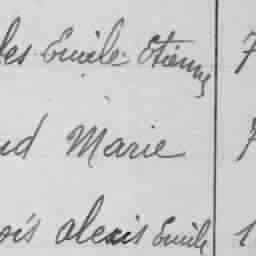 les Emile Etienne 7
nd Marie 7
ois alexis Emile 1